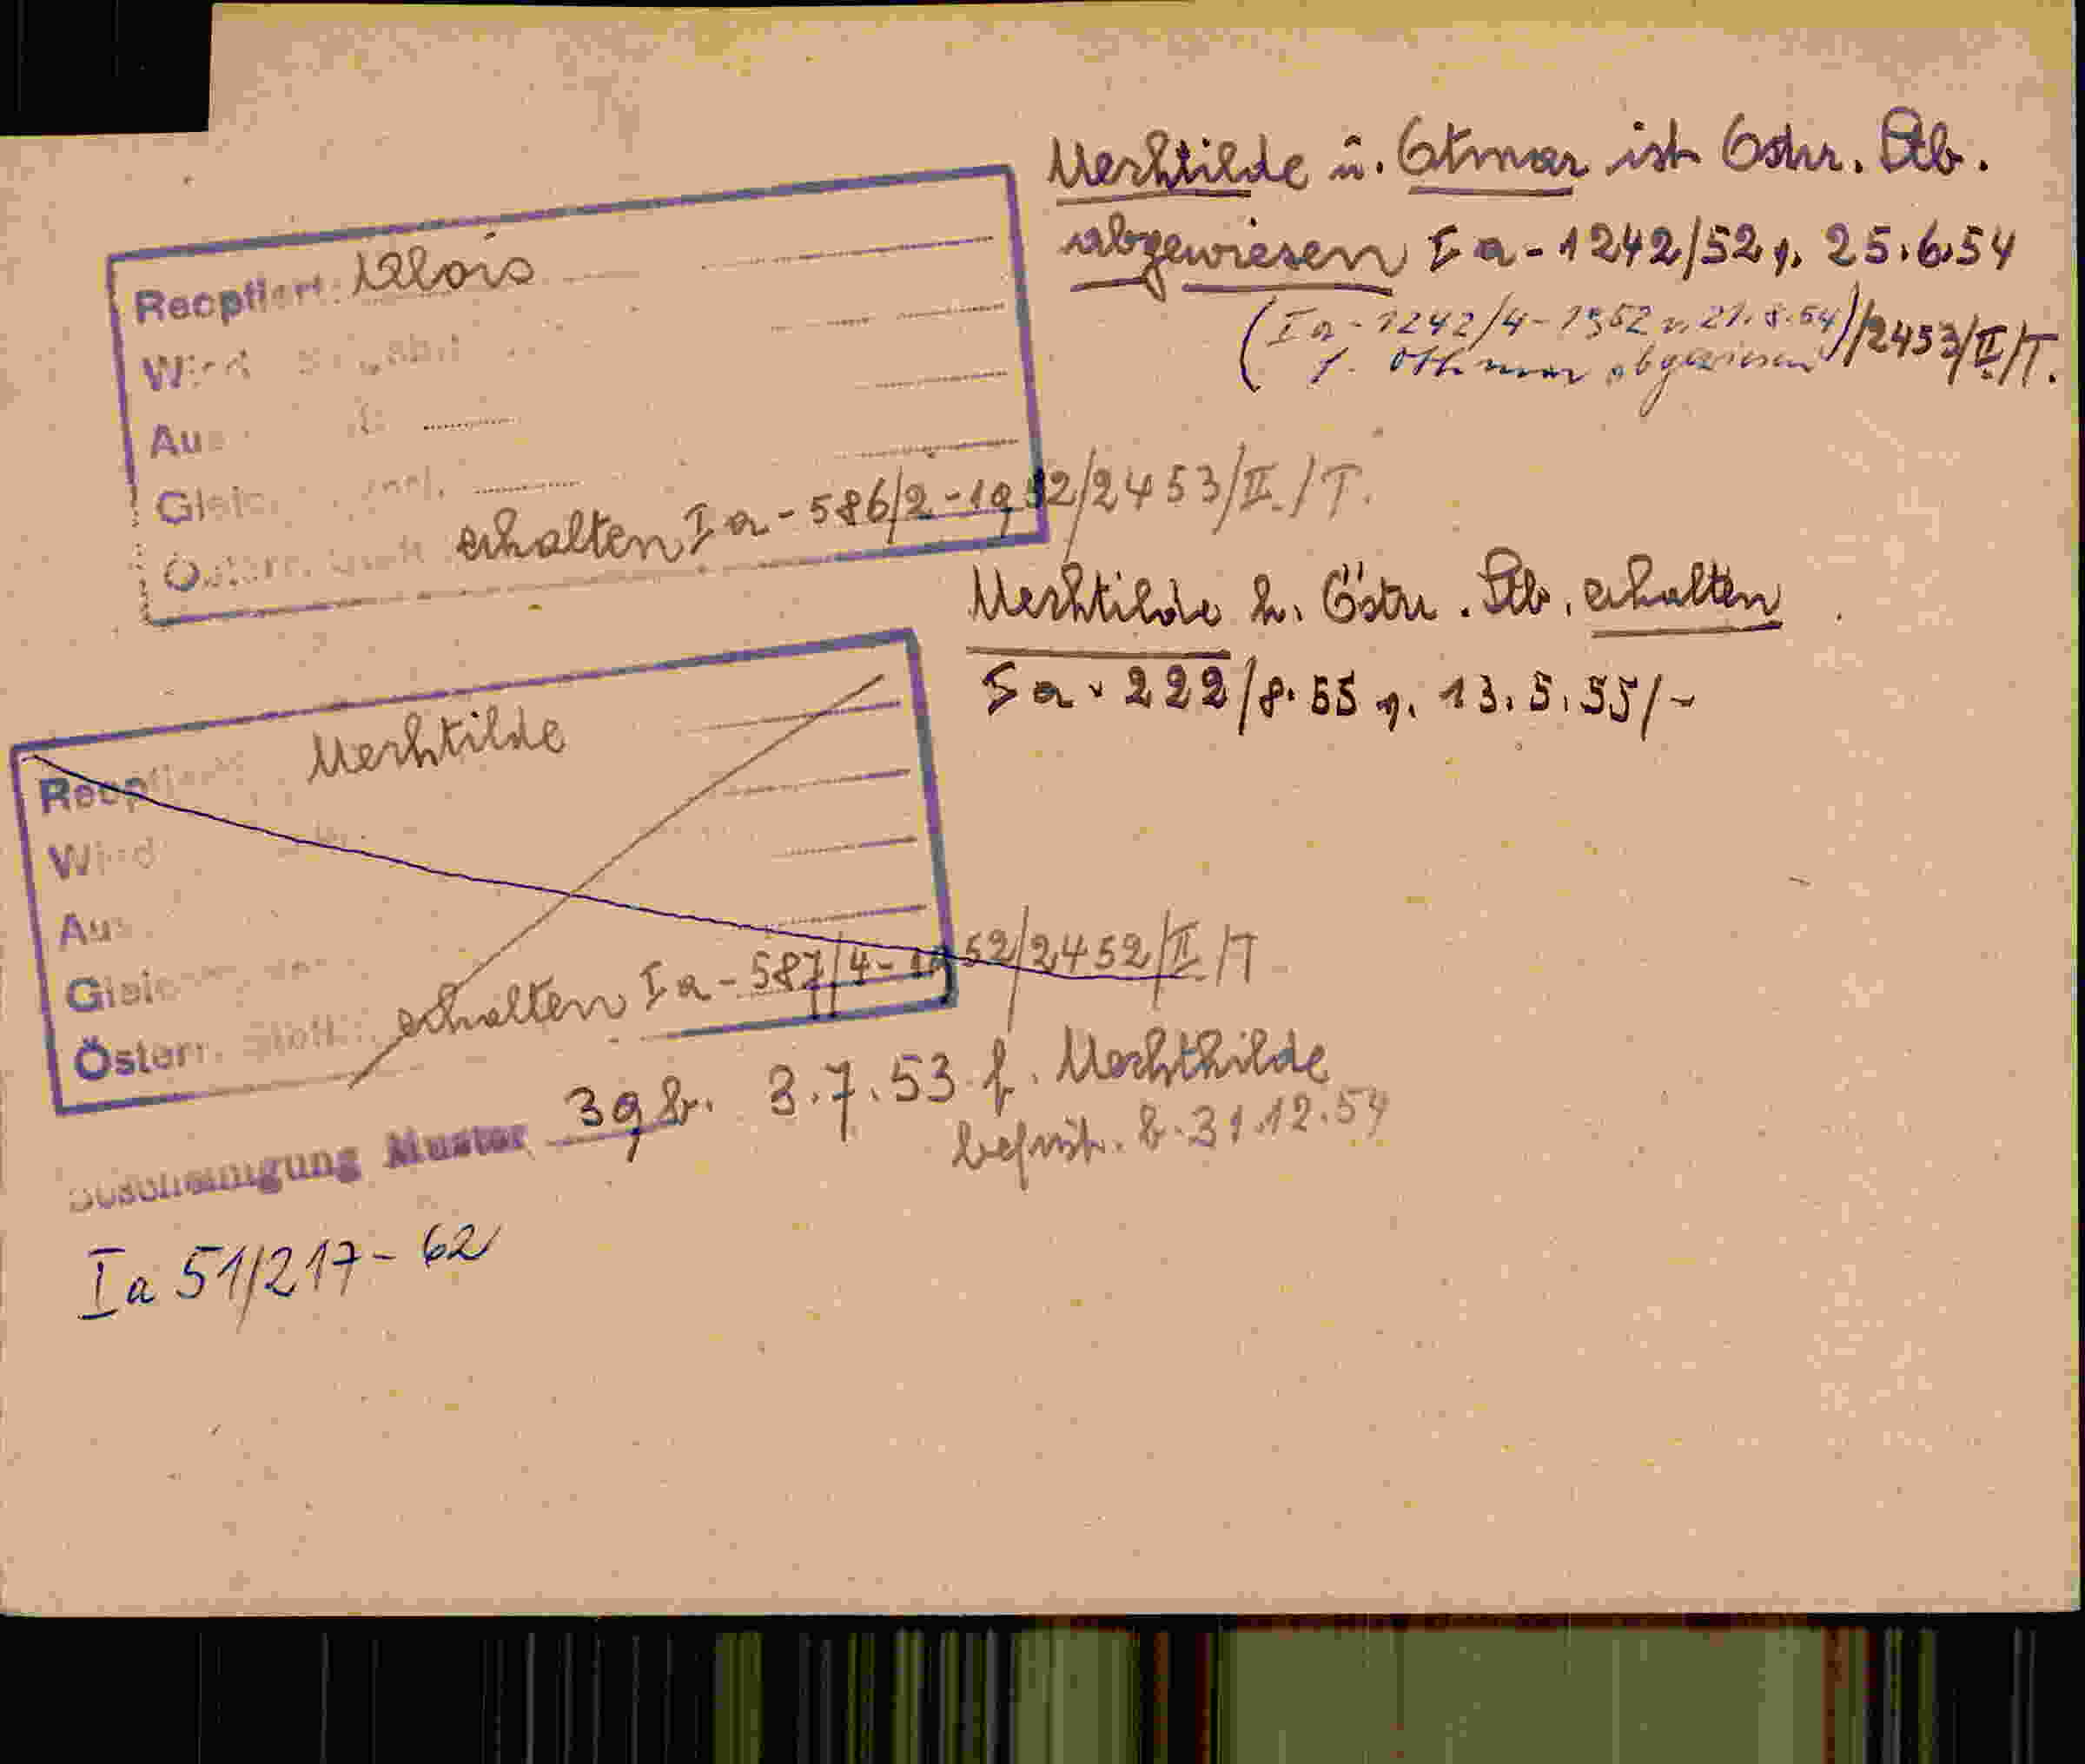 Mechtilde u. Otmar ist Östr. Stb.
abgewiesen Ia-1242/52 v. 25.6.54
(Ia-1242/4-1952 v. 21.8.54)//2453/II/T.
f. Othmar abgewiesen
Reoptiert: Alois
Wird
Aus
Gleic
erhalten Ia-586/2-1952/2453/II./T.
Österr.
Mechtilde h. Östr. Stb. erhalten
Ia-222/8.55 v. 13.5.55/-
Mechtilde
Reoptiert
Wird
Aus
Gleic
Österr. erhalten Ia-587/4-1952/2452/II/T
Bescheinigung Muster 39 3.7.53 f. Mechthilde
befrist. b. 31.12.54
Ia 51/217-62